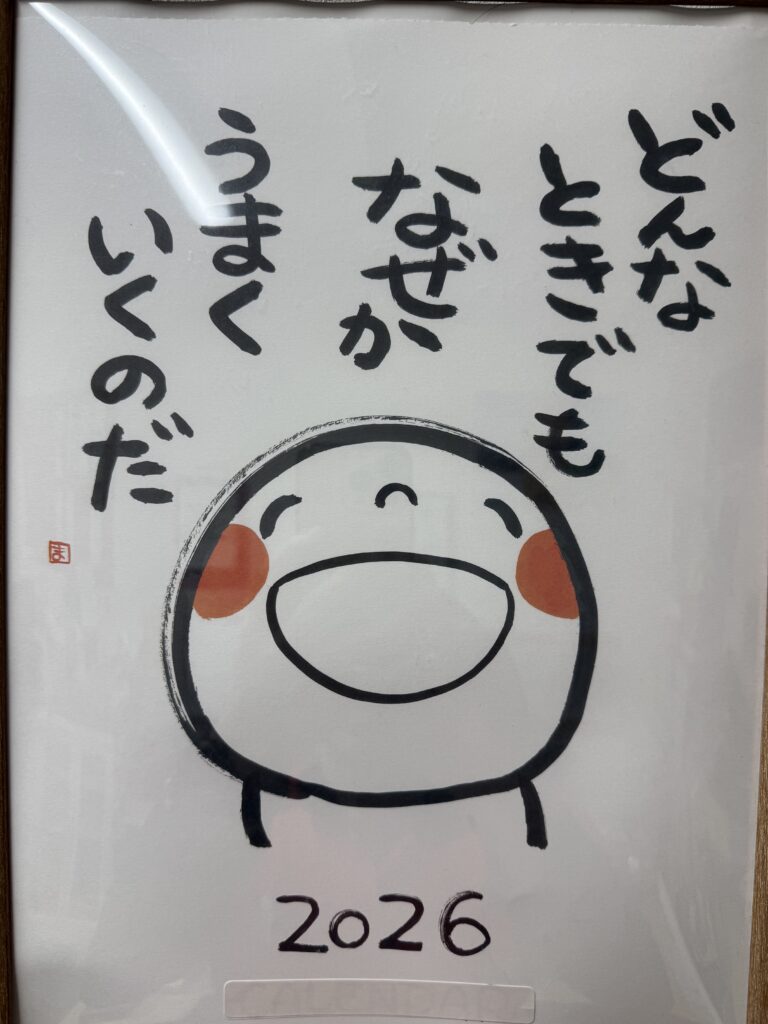 どんな
ときでも
なぜか
うまく
いくのだ
ま
2026